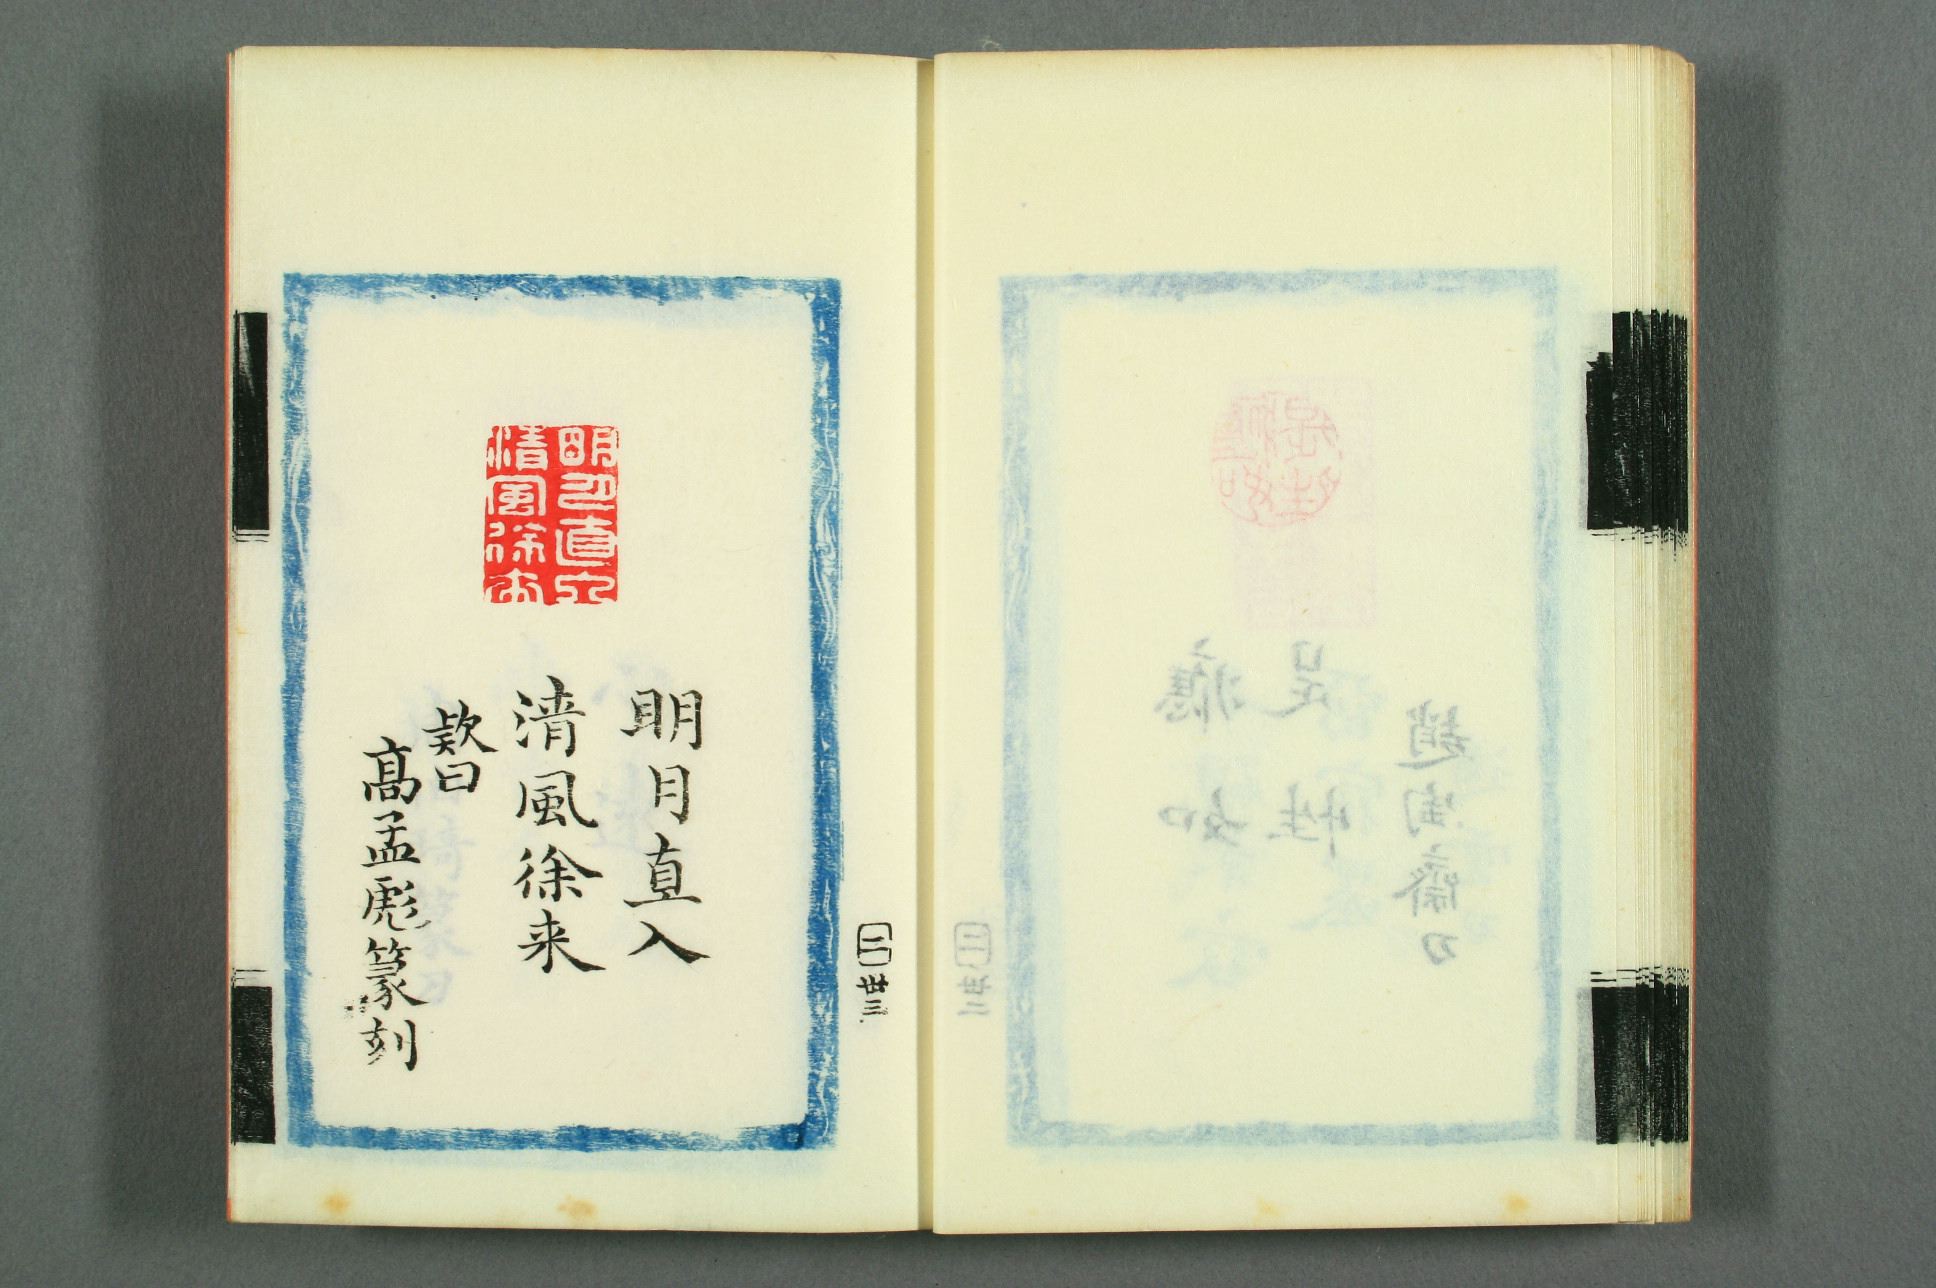 明月直入
清風徐来
明月直入
清風徐来
欵曰
髙孟彪篆刻
二 丗三